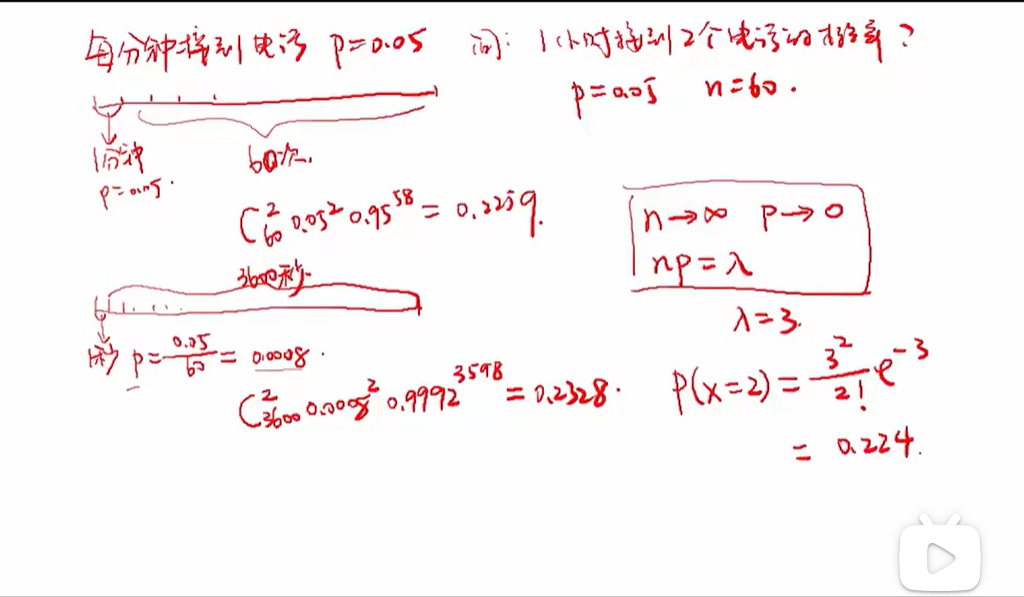 每分钟接到电话 p=0.05 问: 1小时接到2个电话的概率?
p=0.05 n=60.
1分钟
p=0.05.
60次.
C₆₀² 0.05² 0.95⁵⁸ = 0.2259.
n→∞ p→0
np=λ
λ=3.
3600秒
1秒 p=0.05/60=0.0008.
C₃₆₀₀² 0.0008² 0.9992³⁵⁹⁸ = 0.2328.
P(x=2) = 3²/2! e⁻³
= 0.224.